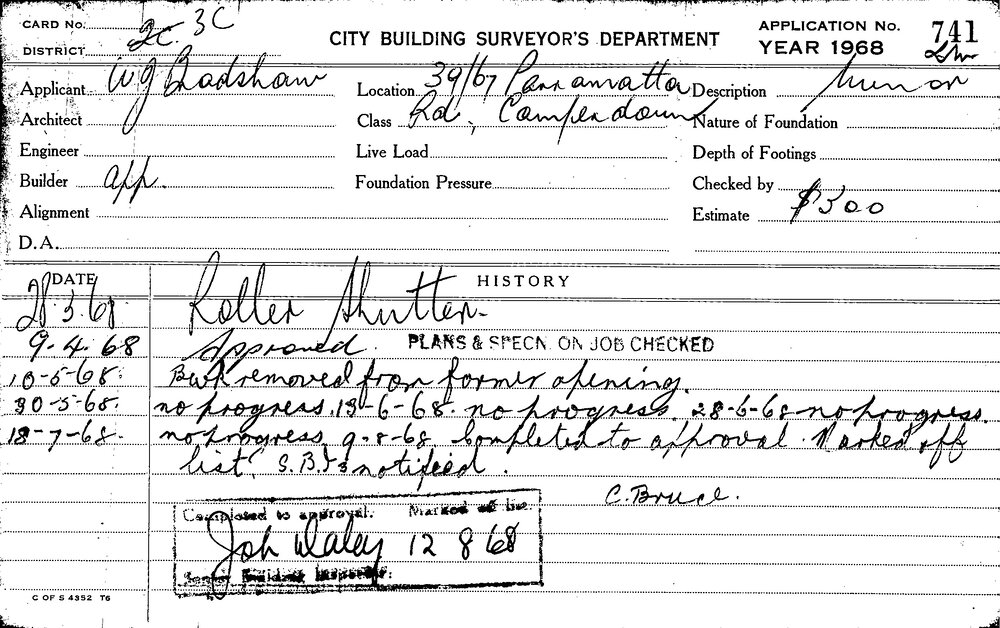 CARD No. 2c 3C
DISTRICT
CITY BUILDING SURVEYOR'S DEPARTMENT
APPLICATION No. 741
YEAR 1968
Applicant W J Bradshaw
Location 39/67 Parramatta
Description Minor
Architect
Class Rd, Camperdown
Nature of Foundation
Engineer
Live Load
Depth of Footings
Builder app.
Foundation Pressure
Checked by
Alignment
Estimate $300
D.A.
DATE
HISTORY
28.3.68 Roller Shutter.
9.4.68 Approved. PLANS & SPECN. ON JOB CHECKED
10-5-68. removed from former opening.
30-5-68. no progress. 13-6-68. no progress. 28-6-68 no progress.
18-7-68. no progress. 9-8-68. Completed to approval. Marked off
list. S.B.I. notified.
C. Bruce.
Completed to approval. Marked off list.
Joh Daley 12 8 68
Senior Building Inspector:
C OF S 4352 T6